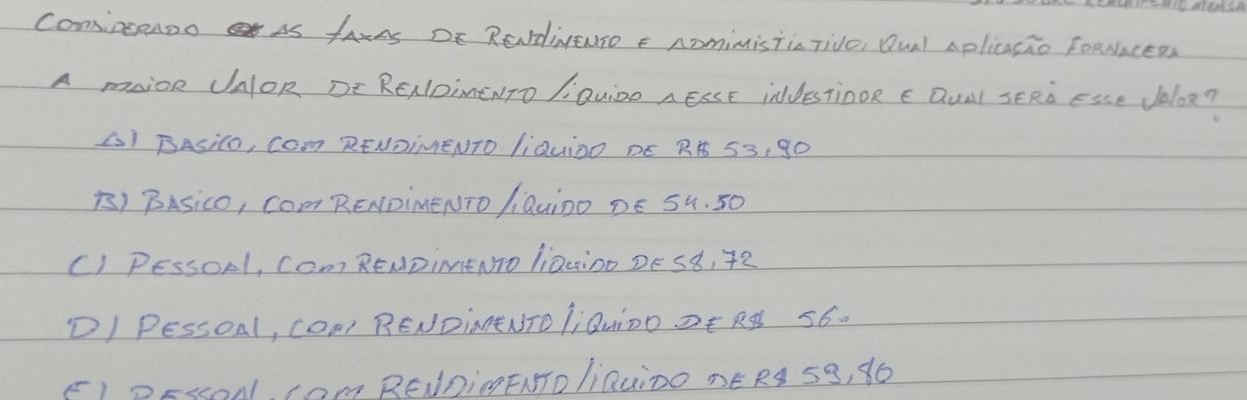 CONSIDERADO AS TAXAS DE RENDIMENTO E ADMIMISTIATIVO, QUAL APLICAÇÃO FORNACERA
A MAIOR VALOR DE RENDIMENTO LIQUIDO A ESSE INVESTIDOR E QUAL SERÁ ESSE VALOR?
A) BASICO, COM RENDIMENTO LIQUIDO DE R$ 53,90
B) BASICO, COM RENDIMENTO LIQUIDO DE 54.50
C) PESSOAL, COM RENDIMENTO LIQUIDO DE 58,72
D) PESSOAL, COM RENDIMENTO LIQUIDO DE R$ 56.
E) PESSOAL, COM RENDIMENTO LIQUIDO DE R$ 59,80